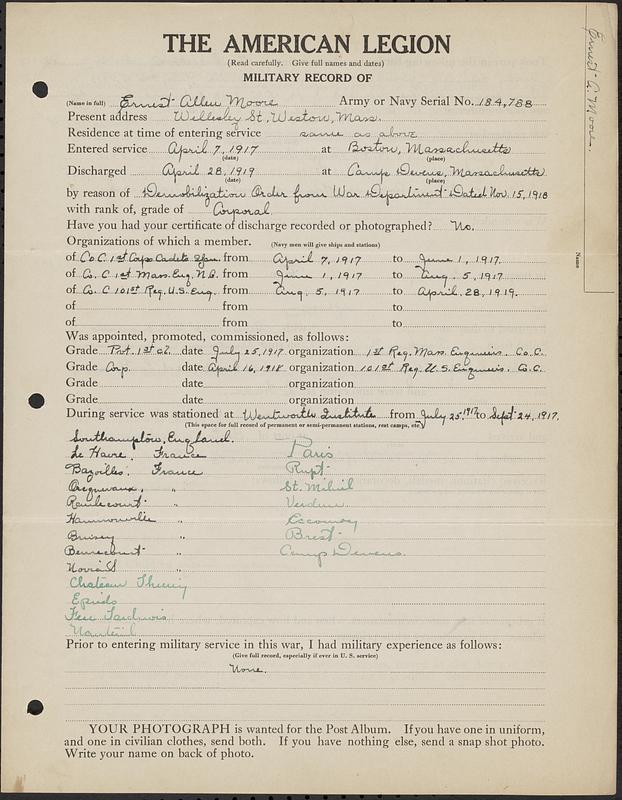 THE AMERICAN LEGION
(Read carefully. Give full names and dates)
MILITARY RECORD OF
(Name in full) Ernest Allen Moore Army or Navy Serial No. 184,788
Present address Wellesley St, Weston, Mass.
Residence at time of entering service same as above
Entered service April 7, 1917 at Boston, Massachusetts
(date) (place)
Discharged April 28, 1919 at Camp Devens, Massachusetts
(date) (place)
by reason of Demobilization Order from War Department Dated Nov. 15, 1918
with rank, of grade of Corporal
Have you had your certificate of discharge recorded or photographed? No.
Organizations of which a member. (Navy men will give ships and stations)
of Co C 1st Corps Cadets from April 7, 1917 to June 1, 1917.
of Co. C 1st Mass. Eng. N.G. from June 1, 1917 to Aug. 5, 1917
of Co. C 101st Reg. U.S. Eng. from Aug. 5, 1917 to April. 28, 1919.
of from to
of from to
Was appointed, promoted, commissioned, as follows:
Grade Pvt. 1st cl. date July 25, 1917 organization 1st Reg. Mass. Engineers. Co. C.
Grade Corp. date April 16, 1918 organization 101st Reg. U.S. Engineers. Co. C.
Grade date organization
Grade date organization
During service was stationed at Wentworth Institute from July 25 1917 to Sept 24, 1917.
(This space for full record of permanent or semi-permanent stations, rest camps, etc.)
Southampton, England.
Le Havre, France Paris
Bazoilles. France Rupt
" St. Mihiel
" Verdun
" 
Bruley " Brest
" Camp Devens.
Chateau Thierry
Epieds
Nanteuil
Prior to entering military service in this war, I had military experience as follows:
(Give full record, especially if ever in U. S. service)
None.
YOUR PHOTOGRAPH is wanted for the Post Album. If you have one in uniform,
and one in civilian clothes, send both. If you have nothing else, send a snap shot photo.
Write your name on back of photo.
Ernest A. Moore.
Name